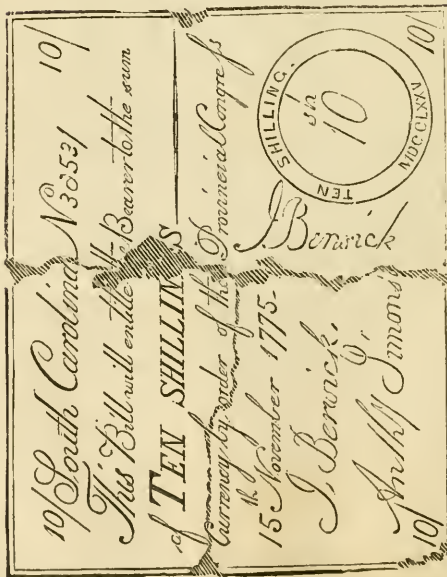 10/ South Carolina N 30531 10/
This Bill will entitle the Bearer to the sum
of TEN SHILLINGS
Currency by order of the Provincial Congress
15th November 1775.
J. Berwick.
Or
Anthy Simons
J Berwick
TEN SHILLING.
sh
10
MDCCLXXV
10/
10/